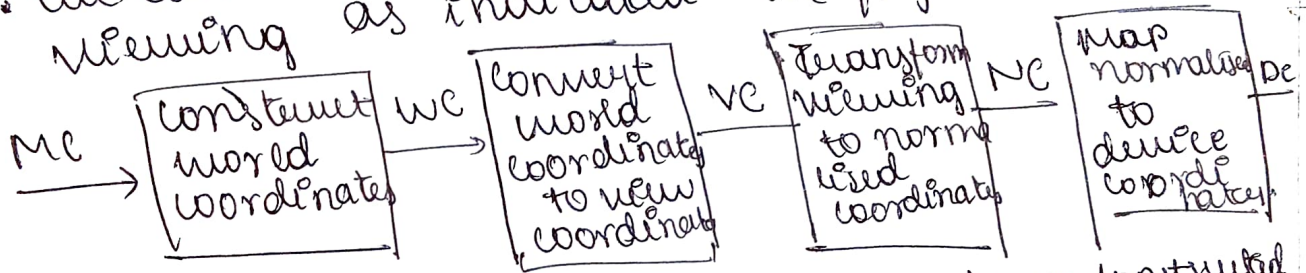 viewing as
MC
construct
world
coordinates
WC
convert
world
coordinates
to view
coordinates
VC
Transform
viewing
to norma
lised
coordinates
NC
Map
normalised
to
device
coordi
nates
DC